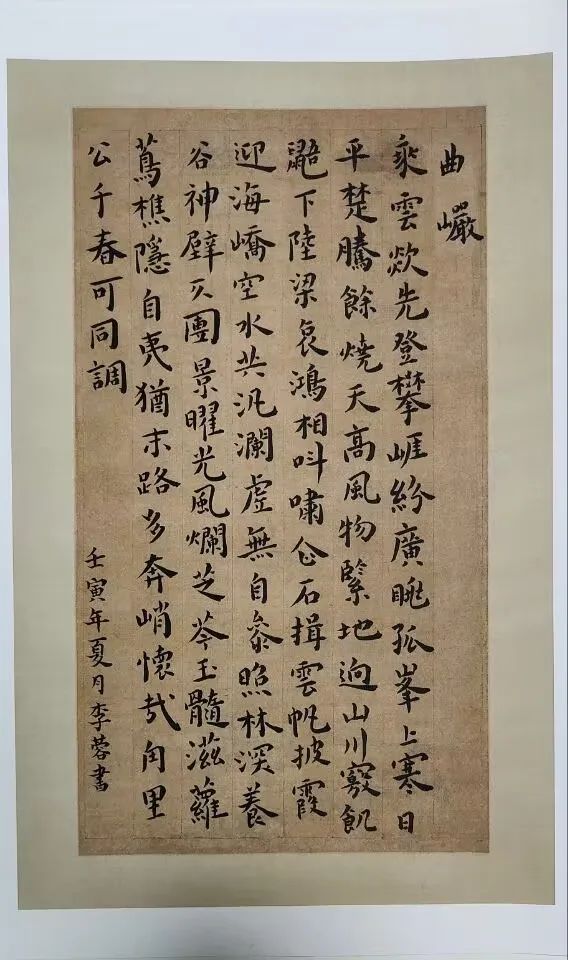 曲巖
乘雲欻先登攀崕紛廣眺孤峯上寒日
平楚騰餘燒天高風物緊地迥山川竅飢
鼯下陸梁哀鴻相叫嘯企石揖雲帆披霞
迎海嶠空水共汎瀾虛無自叅照林深養
谷神壁仄團景曜光風爛芝苓玉髓滋蘿
蔦樵隱自夷猶末路多奔峭懷哉甪里
公千春可同調
壬寅年夏月李蓉書